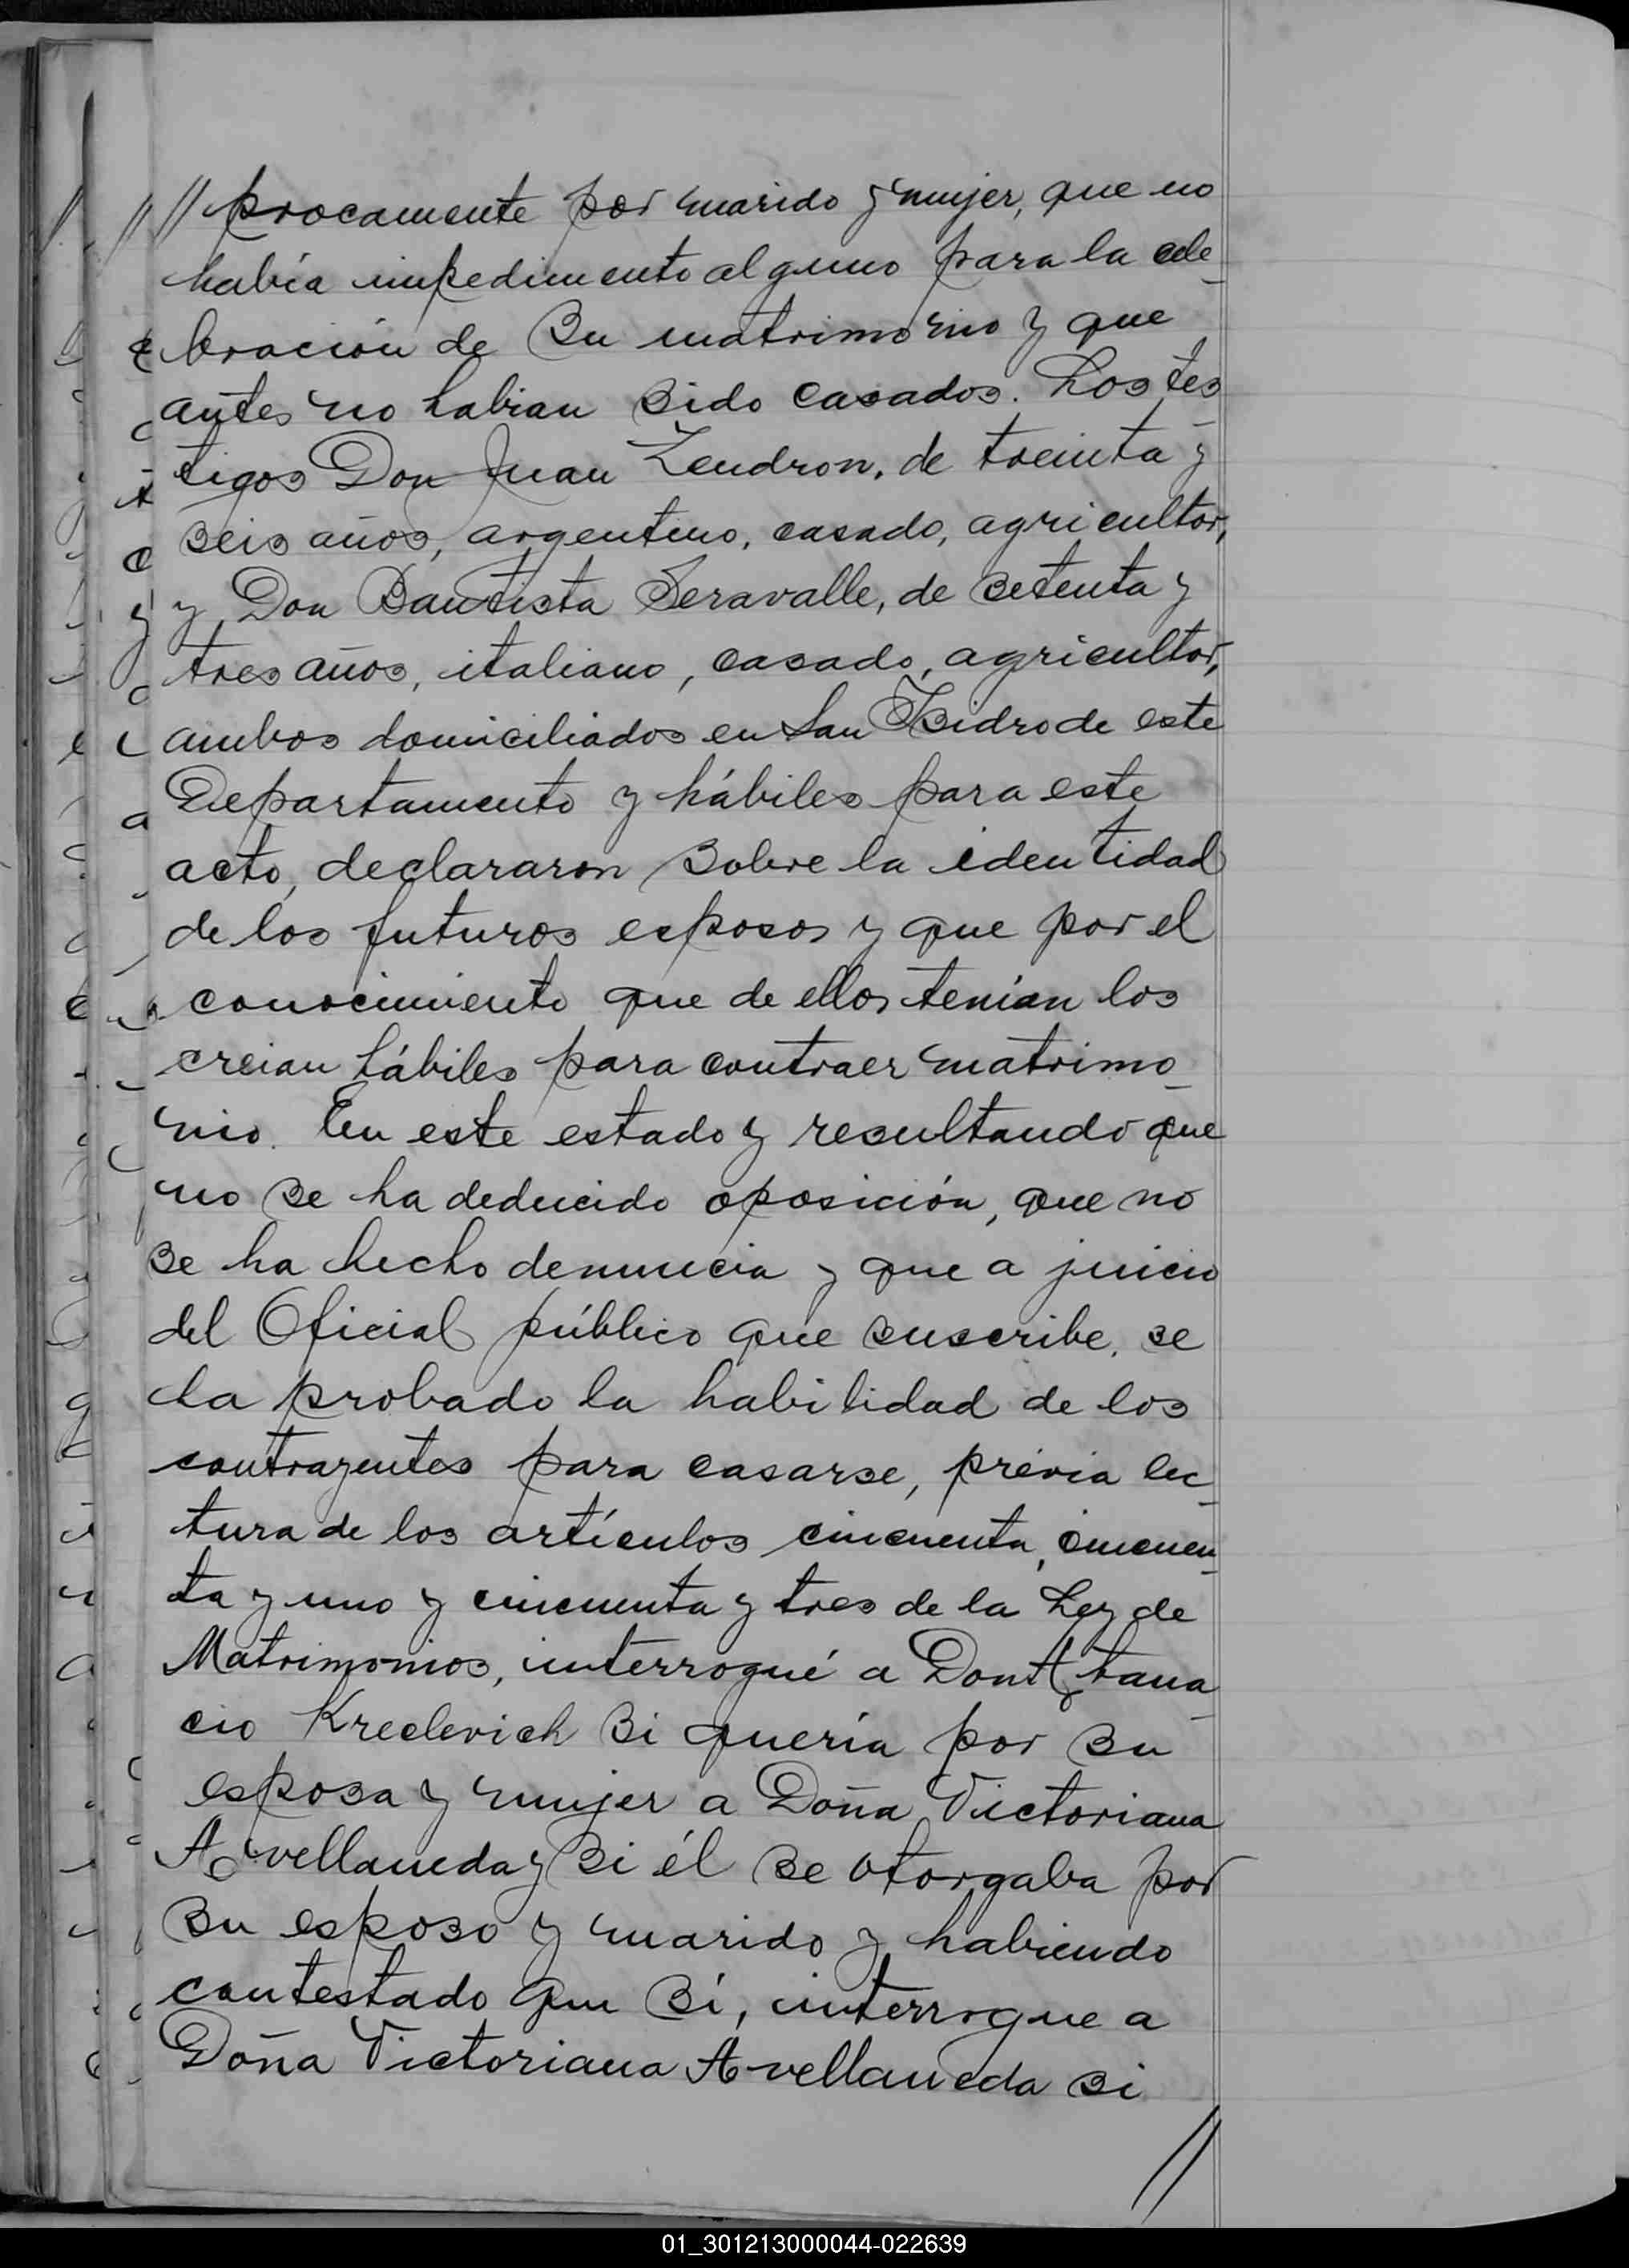 // procamente por marido y mujer, que no
había impedimento alguno para la cele-
bración de su matrimonio y que
antes no habian sido casados. Los tes-
tigos Don Juan Zendron, de treinta y
seis años, argentino, casado, agricultor,
y Don Bautista Seravalle, de setenta y
tres años, italiano, casado, agricultor,
ambos domiciliados en San Isidro de este
Departamento y hábiles para este
acto, declararon sobre la identidad
de los futuros esposos y que por el
conocimiento que de ellos tenían los
creian hábiles para contraer matrimo-
nio. En este estado y resultando que
no se ha deducido oposición, que no
se ha hecho denuncia y que a juicio
del Oficial público que suscribe, se
ha probado la habilidad de los
contrayentes para casarse, previa lec-
tura de los artículos cincuenta, cincuen-
ta y uno y cincuenta y tres de la Ley de
Matrimonios, interrogué a Don Atana-
cio Kreclevich si quería por su
esposa y mujer a Doña Victoriana
Avellaneda y si él se otorgaba por
su esposo y marido y habiendo
contestado que sí, interrogue a
Doña Victoriana Avellaneda si
//
01_301213000044-022639